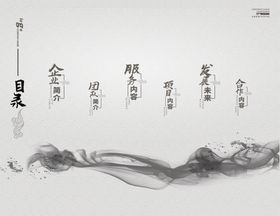 目录
企业简介
团队简介
服务内容
项目内容
发展未来
合作内容